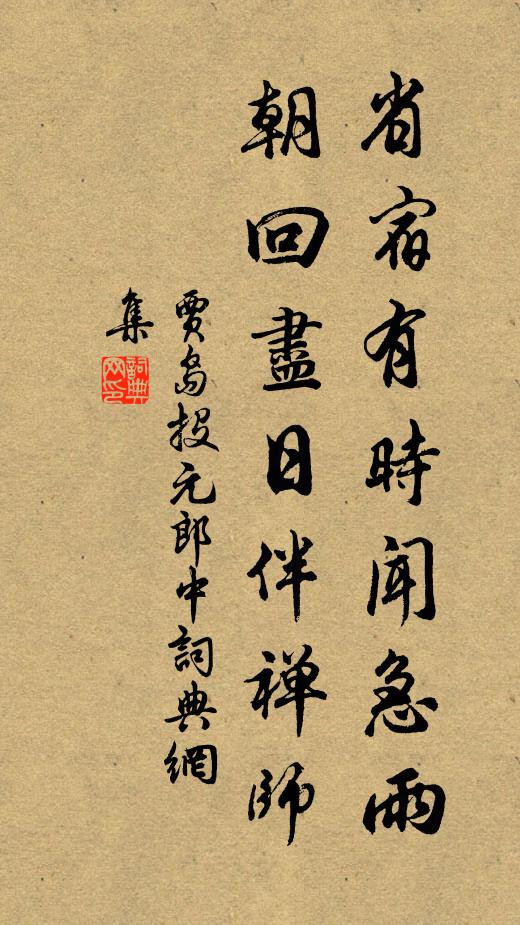 省宿有時聞急雨
朝回盡日伴禅師
賈島投元郎中詞典網
集
詞典
网印